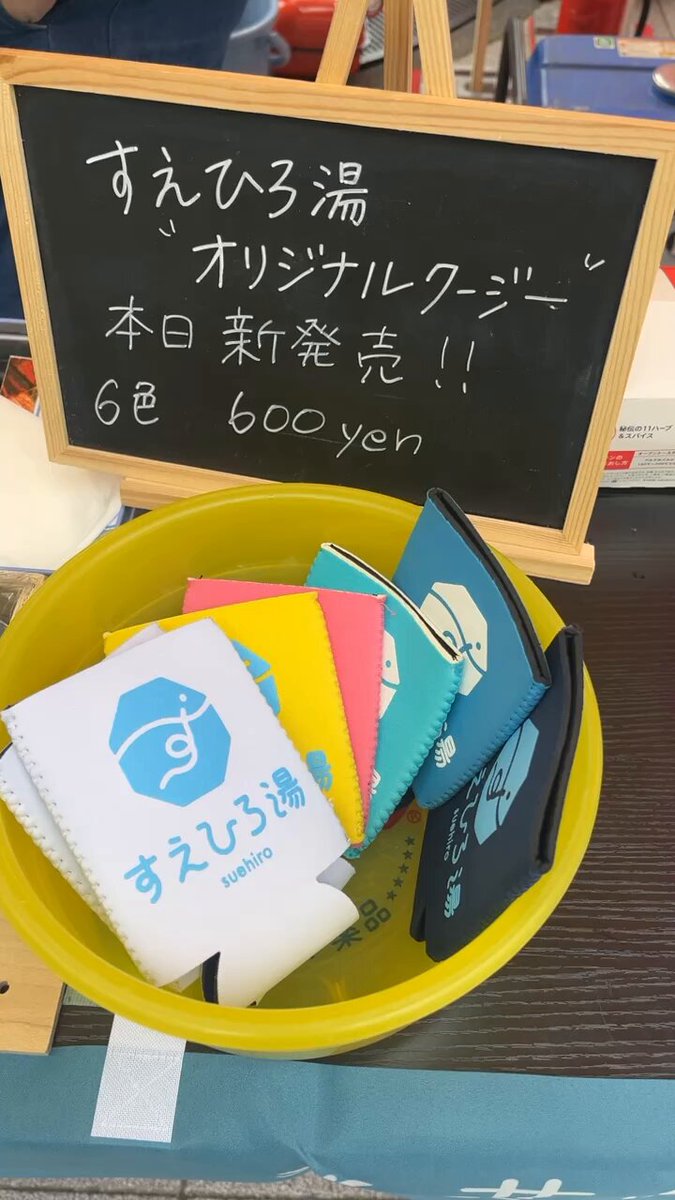 すえひろ湯
"オリジナルクージー"
本日 新発売!!
6色 600yen
秘伝の11ハーブ
&スパイス
す
すえひろ湯
suehiro
湯
湯
す
すえひろ湯
suehiro
薬品